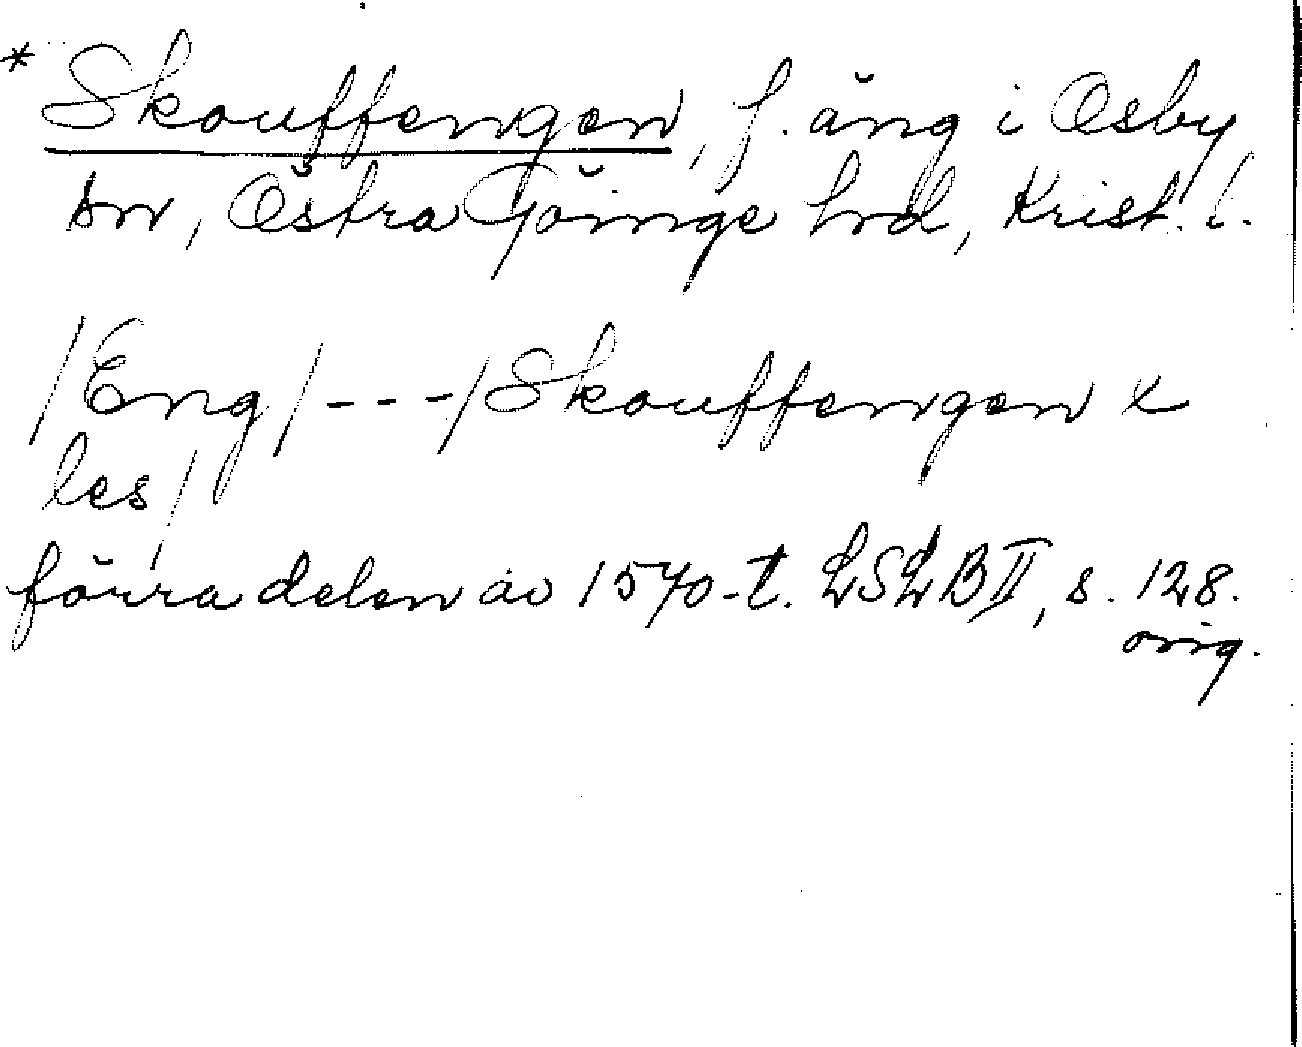 * Skouffengen, f. äng i Osby
sn, Östra Göinge hrd, Krist. l.
/Eng/ - - - /Skouffengen x
les/
förra delen av 1570-t. LSLB II, s. 128.
orig.